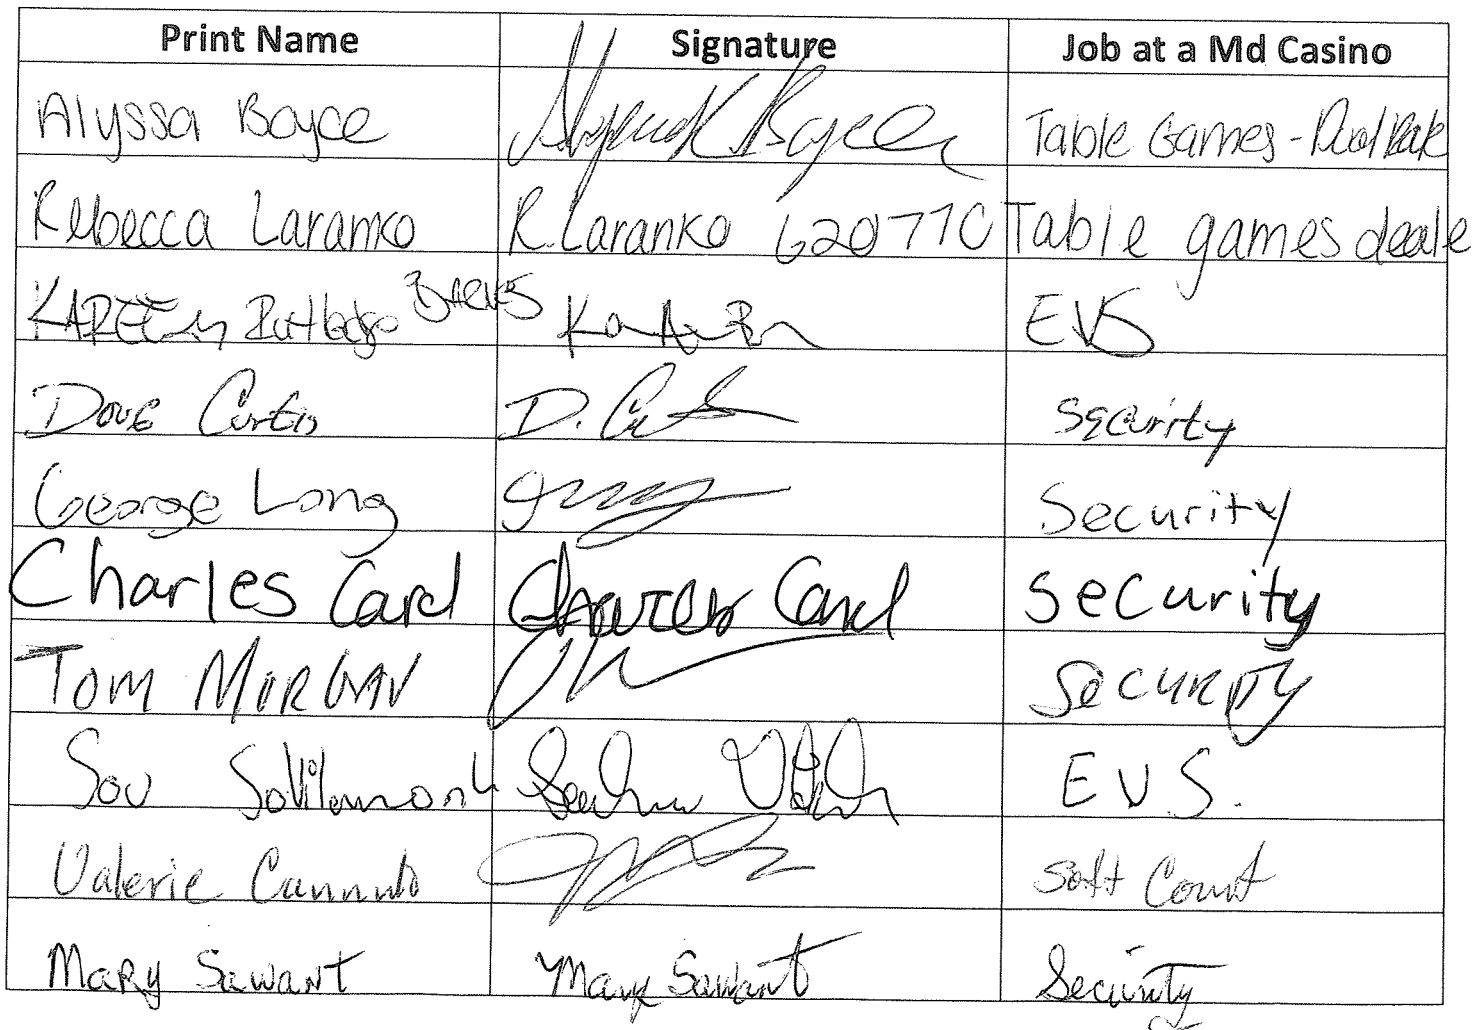 Print Name Signature Job at a Md Casino
Alyssa Boyce Boyce Table Games - Dual Rate
Rebecca Laranko R. Laranko 620771C Table games deale
KAREEM Rutledge BARNES EVS
Doug Curtis D. Security
George Long Security
Charles Card Charles Card Security
Tom MORGAN SECURITY
Sou EVS.
Valerie Cannuto Soft Count
Mary Sawant Mary Sawant Security